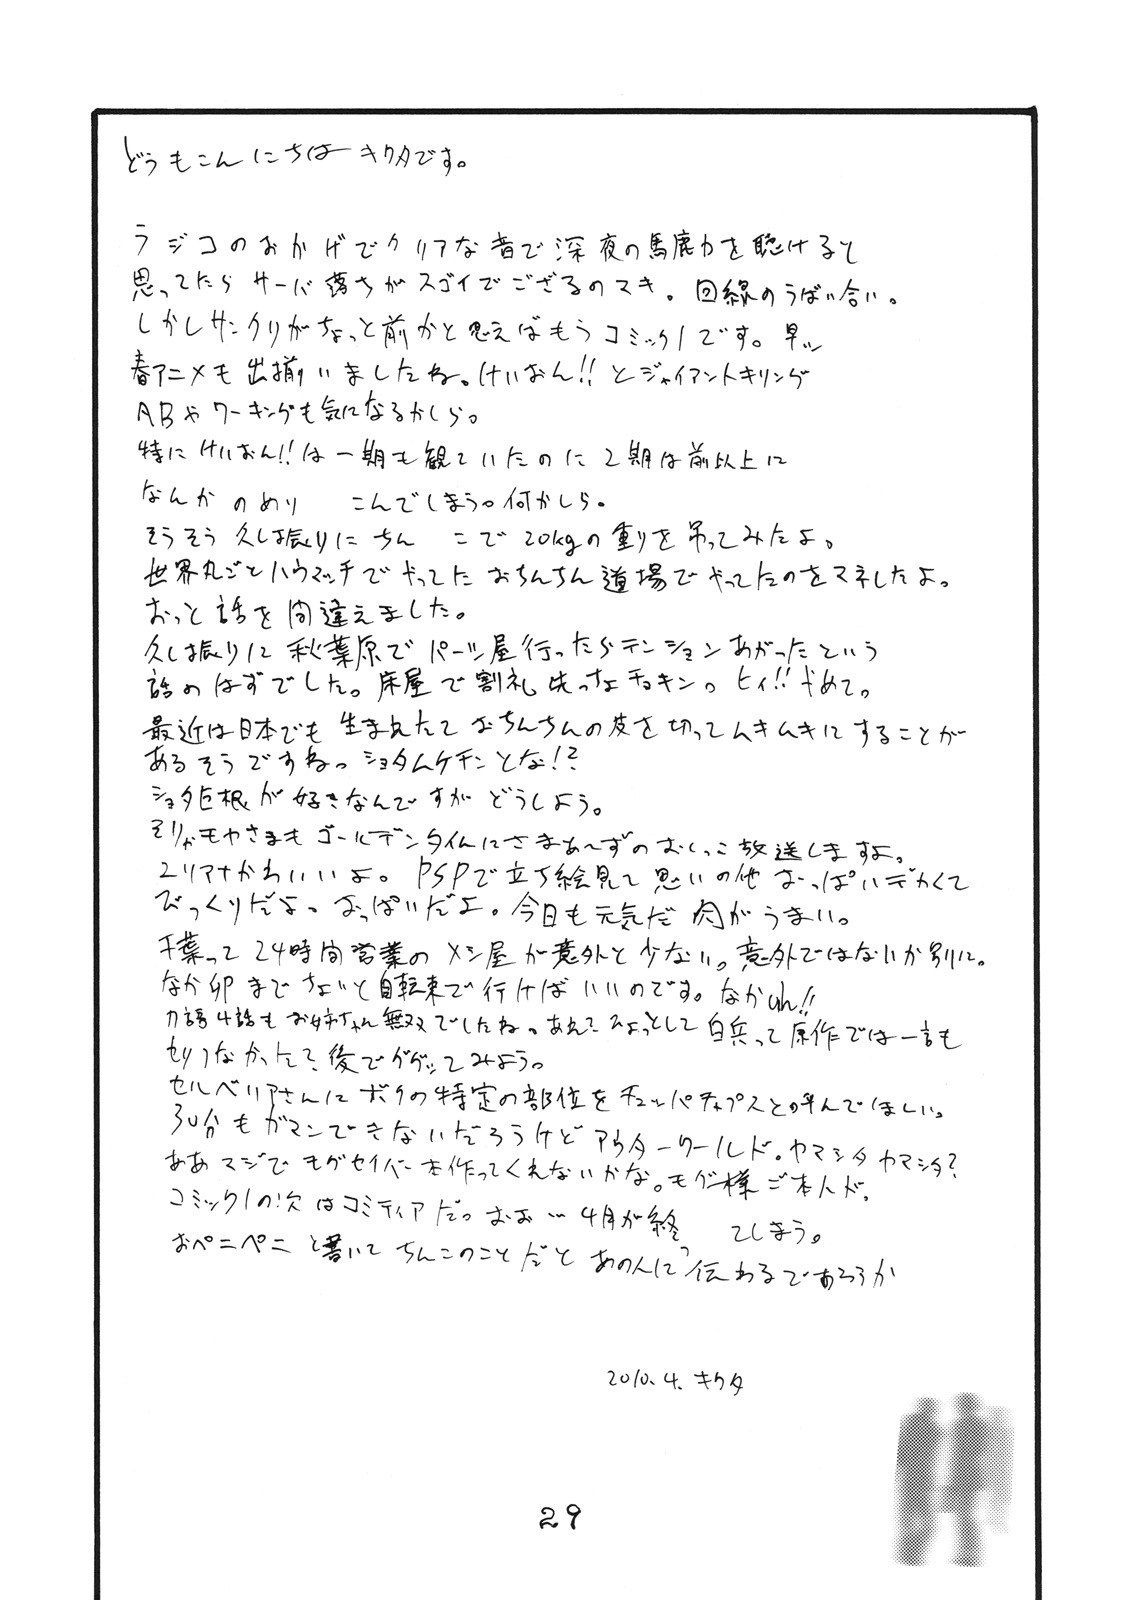 どうもこんにちは キクタです。
ラジコのおかげでクリアな音で深夜の馬鹿力を聴けると
思ってたら サーバ落ちがスゴイでござるのマキ。回線のうばい合い。
しかしサンクリがちょっと前かと思えばもうコミック1です。早ッ
春アニメも出揃いましたね。けいおん!!とジャイアントキリング
ABやワーキングも気になるかしら。
特にけいおん!!は一期も観ていたのに2期は前以上に
なんか のめり こんでしまう。何かしら。
そうそう 久し振りに ちん こで20kgの重りを吊ってみたよ。
世界丸ごとハウマッチでやってた おちんちん道場でやってたのをマネしたよ。
おっと話を間違えました。
久し振りに 秋葉原で パーツ屋行ったらテンションあがったという
話のはずでした。床屋で割礼 先っちょチョキン。ヒィ!!やめて。
そりゃもやさまも ゴールデンタイムにさまぁ〜ずのおしっこ放送しますよ。
ユリアナかわいいよ。PSPで立ち絵見て 思いの他 おっぱいデカくて
びっくりだよ。おっぱいだよ。今日も元気だ 肉がうまい。
千葉って24時間営業の メシ屋が意外と少ない。意外ではないか別に。
なか卯までちょいと自転車で行けば いいのです。なか卯ん!!
刀語4話も お姉ちゃん無双でしたね。あれ?ひょっとして白兵って原作では一言も
セリフなかった?後でググッてみよう。
セルベリアさんに ボクの特定の部位を チュッパチャプスと呼んでほしい。
30分もガマンできないだろうけど アウターワールド。ヤマシタ ヤマシタ?
ああマジで モグセイバー本作ってくれないかな。モグ様ご本人が。
コミック1の次はコミティアだっ おお… 4月が終 てしまう。
おペニペニ と書いて ちんこのことだと あのんに伝わるであろうか
2010.4. キクタ
29